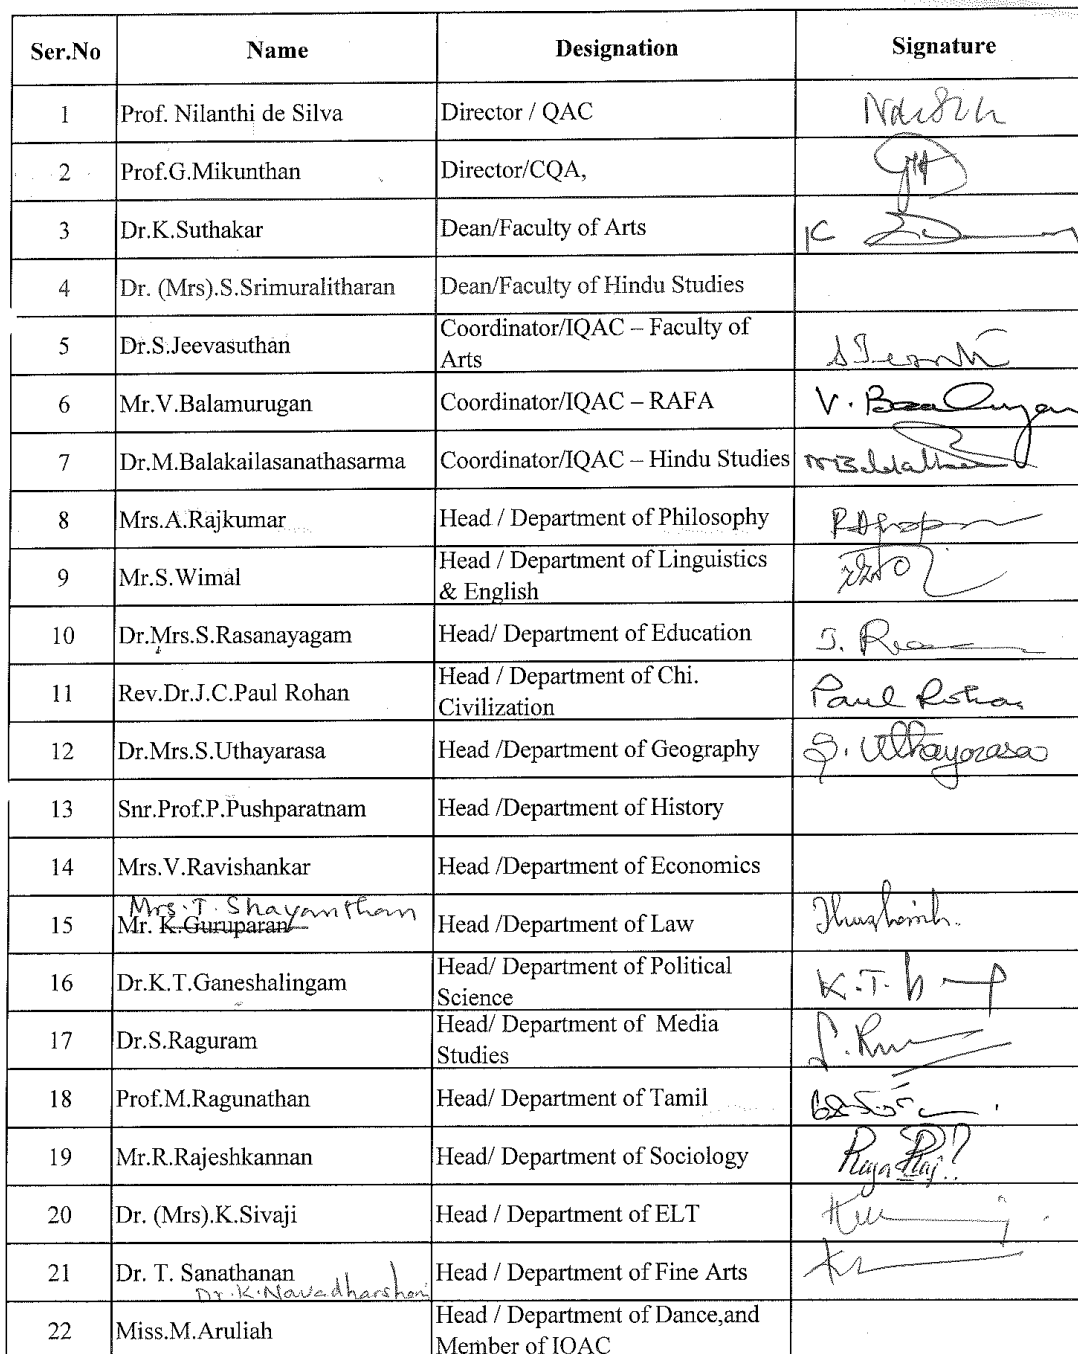 Ser.No Name Designation Signature
1 Prof. Nilanthi de Silva Director / QAC
2 Prof.G.Mikunthan Director/CQA,
3 Dr.K.Suthakar Dean/Faculty of Arts K
4 Dr. (Mrs).S.Srimuralitharan Dean/Faculty of Hindu Studies
5 Dr.S.Jeevasuthan Coordinator/IQAC – Faculty of
Arts
6 Mr.V.Balamurugan Coordinator/IQAC – RAFA V.
7 Dr.M.Balakailasanathasarma Coordinator/IQAC – Hindu Studies
8 Mrs.A.Rajkumar Head / Department of Philosophy
9 Mr.S.Wimal Head / Department of Linguistics
& English
10 Dr.Mrs.S.Rasanayagam Head/ Department of Education
11 Rev.Dr.J.C.Paul Rohan Head / Department of Chi.
Civilization Paul Rohan
12 Dr.Mrs.S.Uthayarasa Head /Department of Geography S. Uthayarasa
13 Snr.Prof.P.Pushparatnam Head /Department of History
14 Mrs.V.Ravishankar Head /Department of Economics
Mrs.T.Shayanthan
15 Mr. K.Guruparan Head /Department of Law
16 Dr.K.T.Ganeshalingam Head/ Department of Political
Science K.T.
17 Dr.S.Raguram Head/ Department of Media
Studies
18 Prof.M.Ragunathan Head/ Department of Tamil
19 Mr.R.Rajeshkannan Head/ Department of Sociology
20 Dr. (Mrs).K.Sivaji Head / Department of ELT
21 Dr. T. Sanathanan Head / Department of Fine Arts
Dr.K.Navadharshani
22 Miss.M.Aruliah Head / Department of Dance,and
Member of IQAC